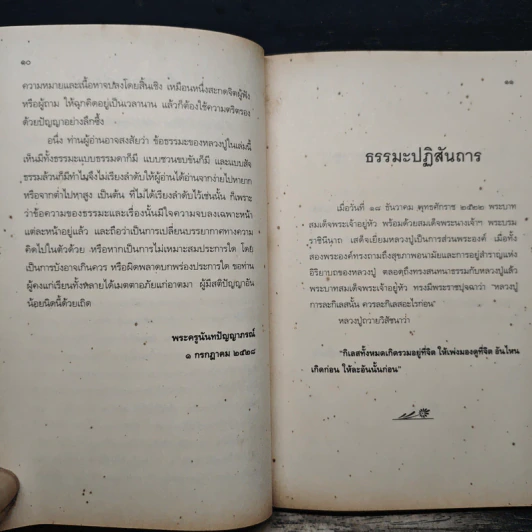 ๑๐
ความหมายและเนื้อหาจบลงโดยสิ้นเชิง เหมือนหนึ่งสะกดจิตผู้ฟัง
หรือผู้ถาม ให้ฉุกคิดอยู่เป็นเวลานาน แล้วก็ต้องใช้ความตริตรอง
ด้วยปัญญาอย่างลึกซึ้ง
อนึ่ง ท่านผู้อ่านอาจสงสัยว่า ข้อธรรมะของหลวงปู่ในเล่มนี้
เห็นมีทั้งธรรมะแบบธรรมดาก็มี แบบชวนขบขันก็มี และแบบสัจ
ธรรมล้วนก็มีทำไมจึงไม่เรียงลำดับให้ผู้อ่านได้อ่านจากง่ายไปหายาก
หรือจากต่ำไปหาสูง เป็นต้น ที่ไม่ได้เรียงลำดับไว้เช่นนั้น ก็เพราะ
ว่าข้อความของธรรมะและเรื่องนั้นมีใจความจบลงเฉพาะหน้า
แต่ละหน้าอยู่แล้ว และถือว่าเป็นการเปลี่ยนบรรยากาศทางความ
คิดไปในตัวด้วย หรือหากเป็นการไม่เหมาะสมประการใด โดย
เป็นการบังอาจเกินควร หรือผิดพลาดบกพร่องประการใด ขอท่าน
ผู้คงแก่เรียนทั้งหลายได้เมตตาอภัยแก่อาตมา ผู้มีสติปัญญาอัน
น้อยนิดนี้ด้วยเถิด
พระครูนันทปัญญาภรณ์
๑ กรกฎาคม ๒๕๒๘
๑๑
ธรรมะปฏิสันถาร
เมื่อวันที่ ๑๘ ธันวาคม พุทธศักราช ๒๕๒๒ พระบาท
สมเด็จพระเจ้าอยู่หัว พร้อมด้วยสมเด็จพระนางเจ้าฯ พระบรม
ราชินีนาถ เสด็จเยี่ยมหลวงปู่เป็นการส่วนพระองค์ เมื่อทั้ง
สองพระองค์ทรงถามถึงสุขภาพอนามัยและการอยู่สำราญแห่ง
อิริยาบถของหลวงปู่ ตลอดถึงทรงสนทนาธรรมกับหลวงปู่แล้ว
พระบาทสมเด็จพระเจ้าอยู่หัว ทรงมีพระราชปุจฉาว่า "หลวงปู่
การละกิเลสนั้น ควรละกิเลสอะไรก่อน"
หลวงปู่ถวายวิสัชนาว่า
"กิเลสทั้งหมดเกิดรวมอยู่ที่จิต ให้เพ่งมองดูที่จิต อันไหน
เกิดก่อน ให้ละอันนั้นก่อน"